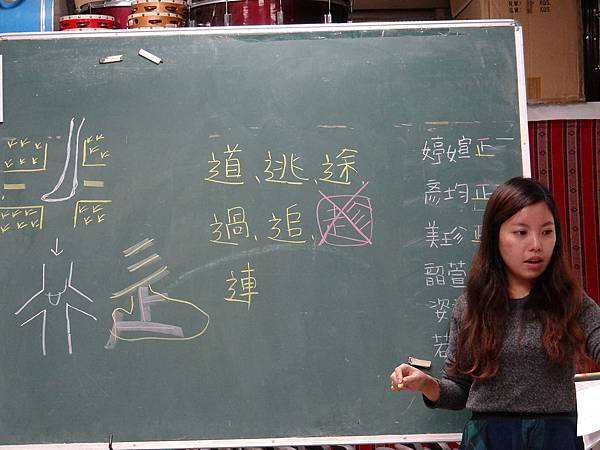 道、逃、途、
過、追、
連
婷媗正一
彥均正
美珍正
韶萱
姿
若